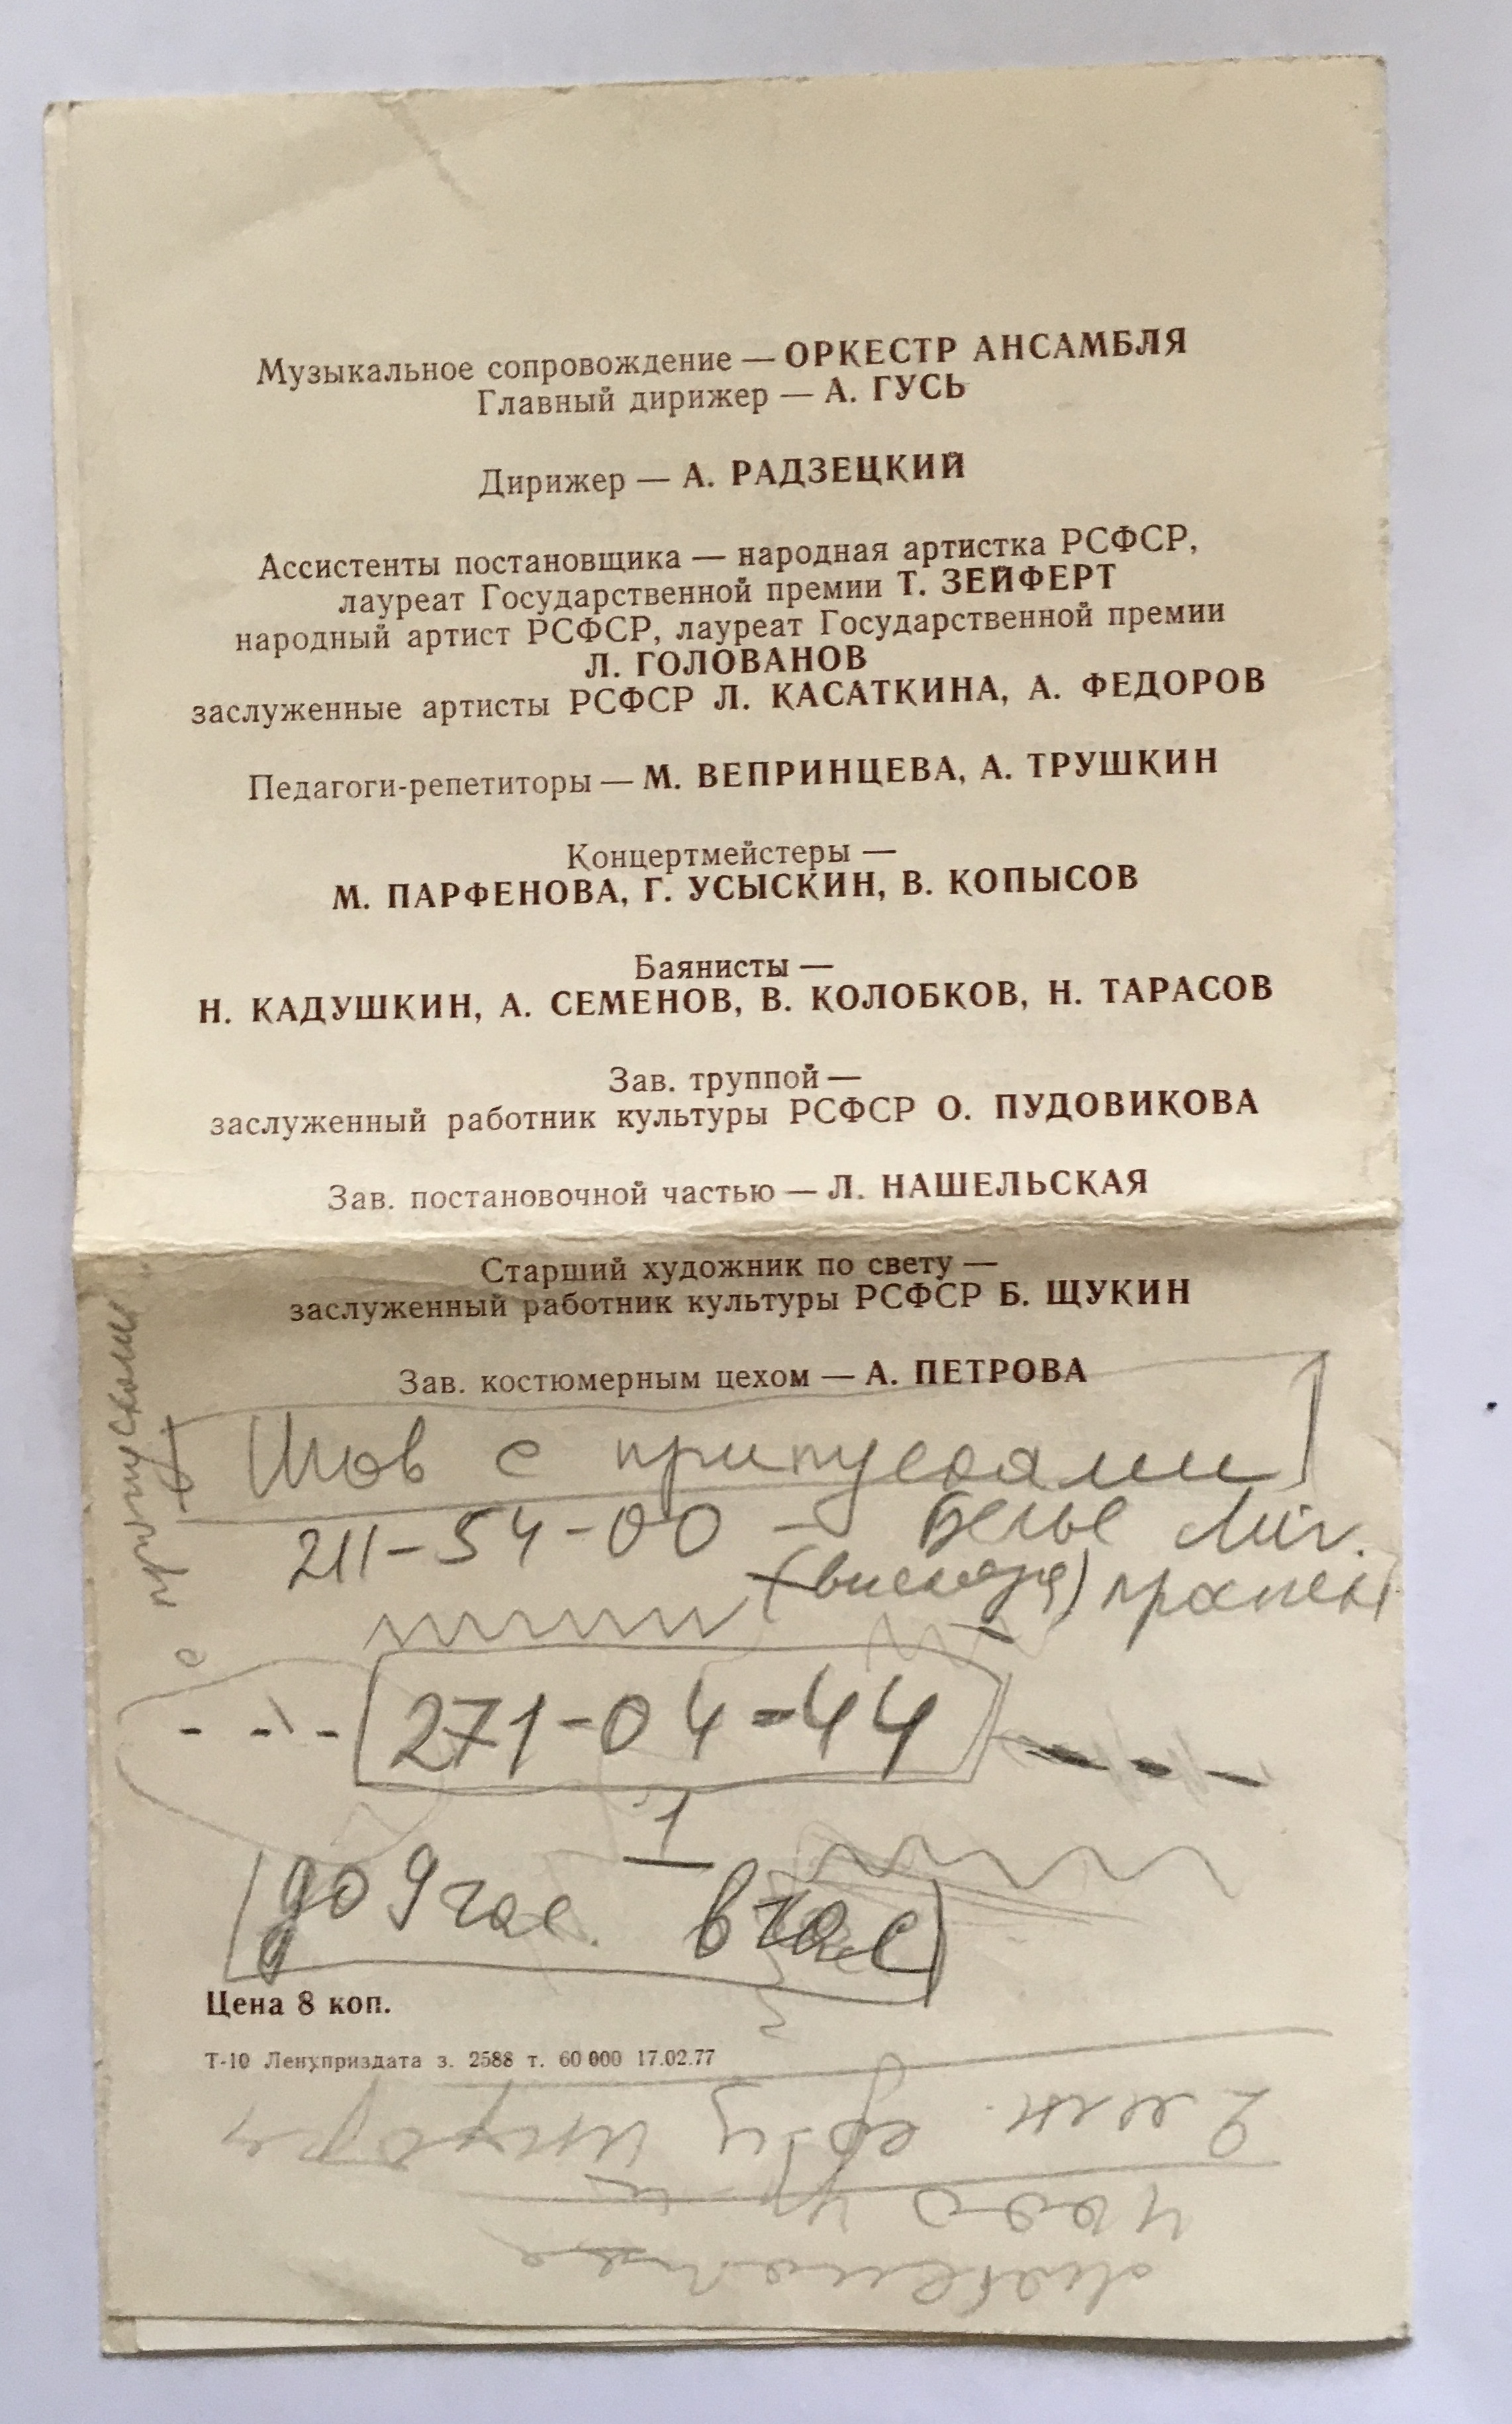 Музыкальное сопровождение — ОРКЕСТР АНСАМБЛЯ
Главный дирижер — А. ГУСЬ
Дирижер — А. РАДЗЕЦКИЙ
Ассистенты постановщика — народная артистка РСФСР,
лауреат Государственной премии Т. ЗЕЙФЕРТ
народный артист РСФСР, лауреат Государственной премии
Л. ГОЛОВАНОВ
заслуженные артисты РСФСР Л. КАСАТКИНА, А. ФЕДОРОВ
Педагоги-репетиторы — М. ВЕПРИНЦЕВА, А. ТРУШКИН
Концертмейстеры —
М. ПАРФЕНОВА, Г. УСЫСКИН, В. КОПЫСОВ
Баянисты —
Н. КАДУШКИН, А. СЕМЕНОВ, В. КОЛОБКОВ, Н. ТАРАСОВ
Зав. труппой —
заслуженный работник культуры РСФСР О. ПУДОВИКОВА
Зав. постановочной частью — Л. НАШЕЛЬСКАЯ
Старший художник по свету —
заслуженный работник культуры РСФСР Б. ЩУКИН
Зав. костюмерным цехом — А. ПЕТРОВА
с припусками
Шов с припусками
211-54-00 - Белье
271-04-44
1
до 9 час. в час
Цена 8 коп.
Т-10 Ленуприздата з. 2588 т. 60 000 17.02.77